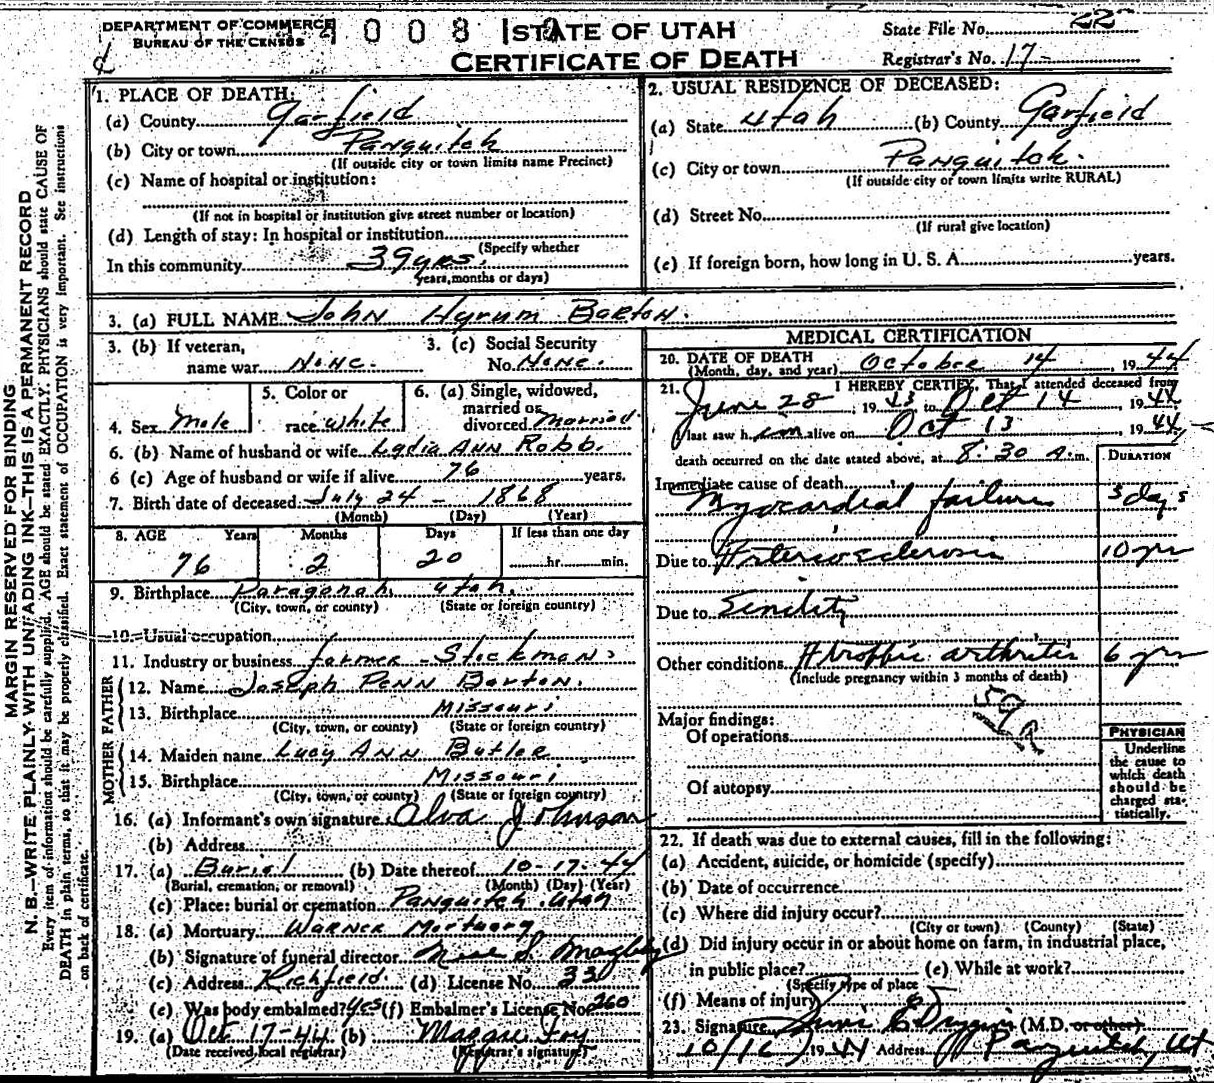 DEPARTMENT OF COMMERCE
BUREAU OF THE CENSUS
4 0 0 8 1 0
STATE OF UTAH
CERTIFICATE OF DEATH
State File No. 22
Registrar's No. 17
MARGIN RESERVED FOR BINDING
N. B.—WRITE PLAINLY WITH UNFADING INK—THIS IS A PERMANENT RECORD
Every item of information should be carefully supplied. AGE should be stated EXACTLY. PHYSICIANS should state CAUSE OF
DEATH in plain terms, so that it may be properly classified. Exact statement of OCCUPATION is very important. See instructions
on back of certificate.
1. PLACE OF DEATH:
(a) County Garfield
(b) City or town Panguitch
(If outside city or town limits name Precinct)
(c) Name of hospital or institution:
(If not in hospital or institution give street number or location)
(d) Length of stay: In hospital or institution
(Specify whether
In this community 39 yrs.
years, months or days)
2. USUAL RESIDENCE OF DECEASED:
(a) State Utah (b) County Garfield
(c) City or town Panguitch.
(If outside city or town limits write RURAL)
(d) Street No.
(If rural give location)
(e) If foreign born, how long in U. S. A. years.
3. (a) FULL NAME John Hyrum Barton.
3. (b) If veteran,
name war None.
3. (c) Social Security
No. None.
4. Sex Male
5. Color or
race White
6. (a) Single, widowed,
married or
divorced Married
6. (b) Name of husband or wife Lydia Ann Robb.
6 (c) Age of husband or wife if alive 76 years.
7. Birth date of deceased July 24 - 1868
(Month) (Day) (Year)
8. AGE Years Months Days If less than one day
76 2 20 hr. min.
9. Birthplace Paragonah, Utah.
(City, town, or county) (State or foreign country)
10. Usual occupation
11. Industry or business Farmer - Stockman.
FATHER
12. Name Joseph Penn Barton.
13. Birthplace Missouri
(City, town, or county) (State or foreign country)
MOTHER
14. Maiden name Lucy Ann Butler
15. Birthplace Missouri
(City, town, or county) (State or foreign country)
16. (a) Informant's own signature Alva Johnson
(b) Address
17. (a) Burial (b) Date thereof 10-17-44
(Burial, cremation, or removal) (Month) (Day) (Year)
(c) Place: burial or cremation Panguitch, Utah
18. (a) Mortuary Warner Mortuary
(b) Signature of funeral director
(c) Address Richfield (d) License No. 33
(e) Was body embalmed? Yes (f) Embalmer's License No. 260
19. (a) Oct 17-44 (b)
(Date received local registrar) (Registrar's signature)
MEDICAL CERTIFICATION
20. DATE OF DEATH October 14 1944
(Month, day, and year)
21. I HEREBY CERTIFY, That I attended deceased from
June 28, 1943 to Oct 14, 1944
last saw him alive on Oct 13 1944,
death occurred on the date stated above, at 8:30 A.m.
DURATION
Immediate cause of death
Myocardial failure 3 days
Due to Arteriosclerosis 10 yrs
Due to Senility
Other conditions Atrophic arthritis 6 yrs
(Include pregnancy within 3 months of death)
Major findings:
Of operations
Of autopsy
PHYSICIAN
Underline
the cause to
which death
should be
charged sta-
tistically.
22. If death was due to external causes, fill in the following:
(a) Accident, suicide, or homicide (specify)
(b) Date of occurrence
(c) Where did injury occur?
(City or town) (County) (State)
(d) Did injury occur in or about home on farm, in industrial place,
in public place? (e) While at work?
(Specify type of place
(f) Means of injury
23. Signature (M.D. or other)
10/16 1944 Address Panguitch, Ut